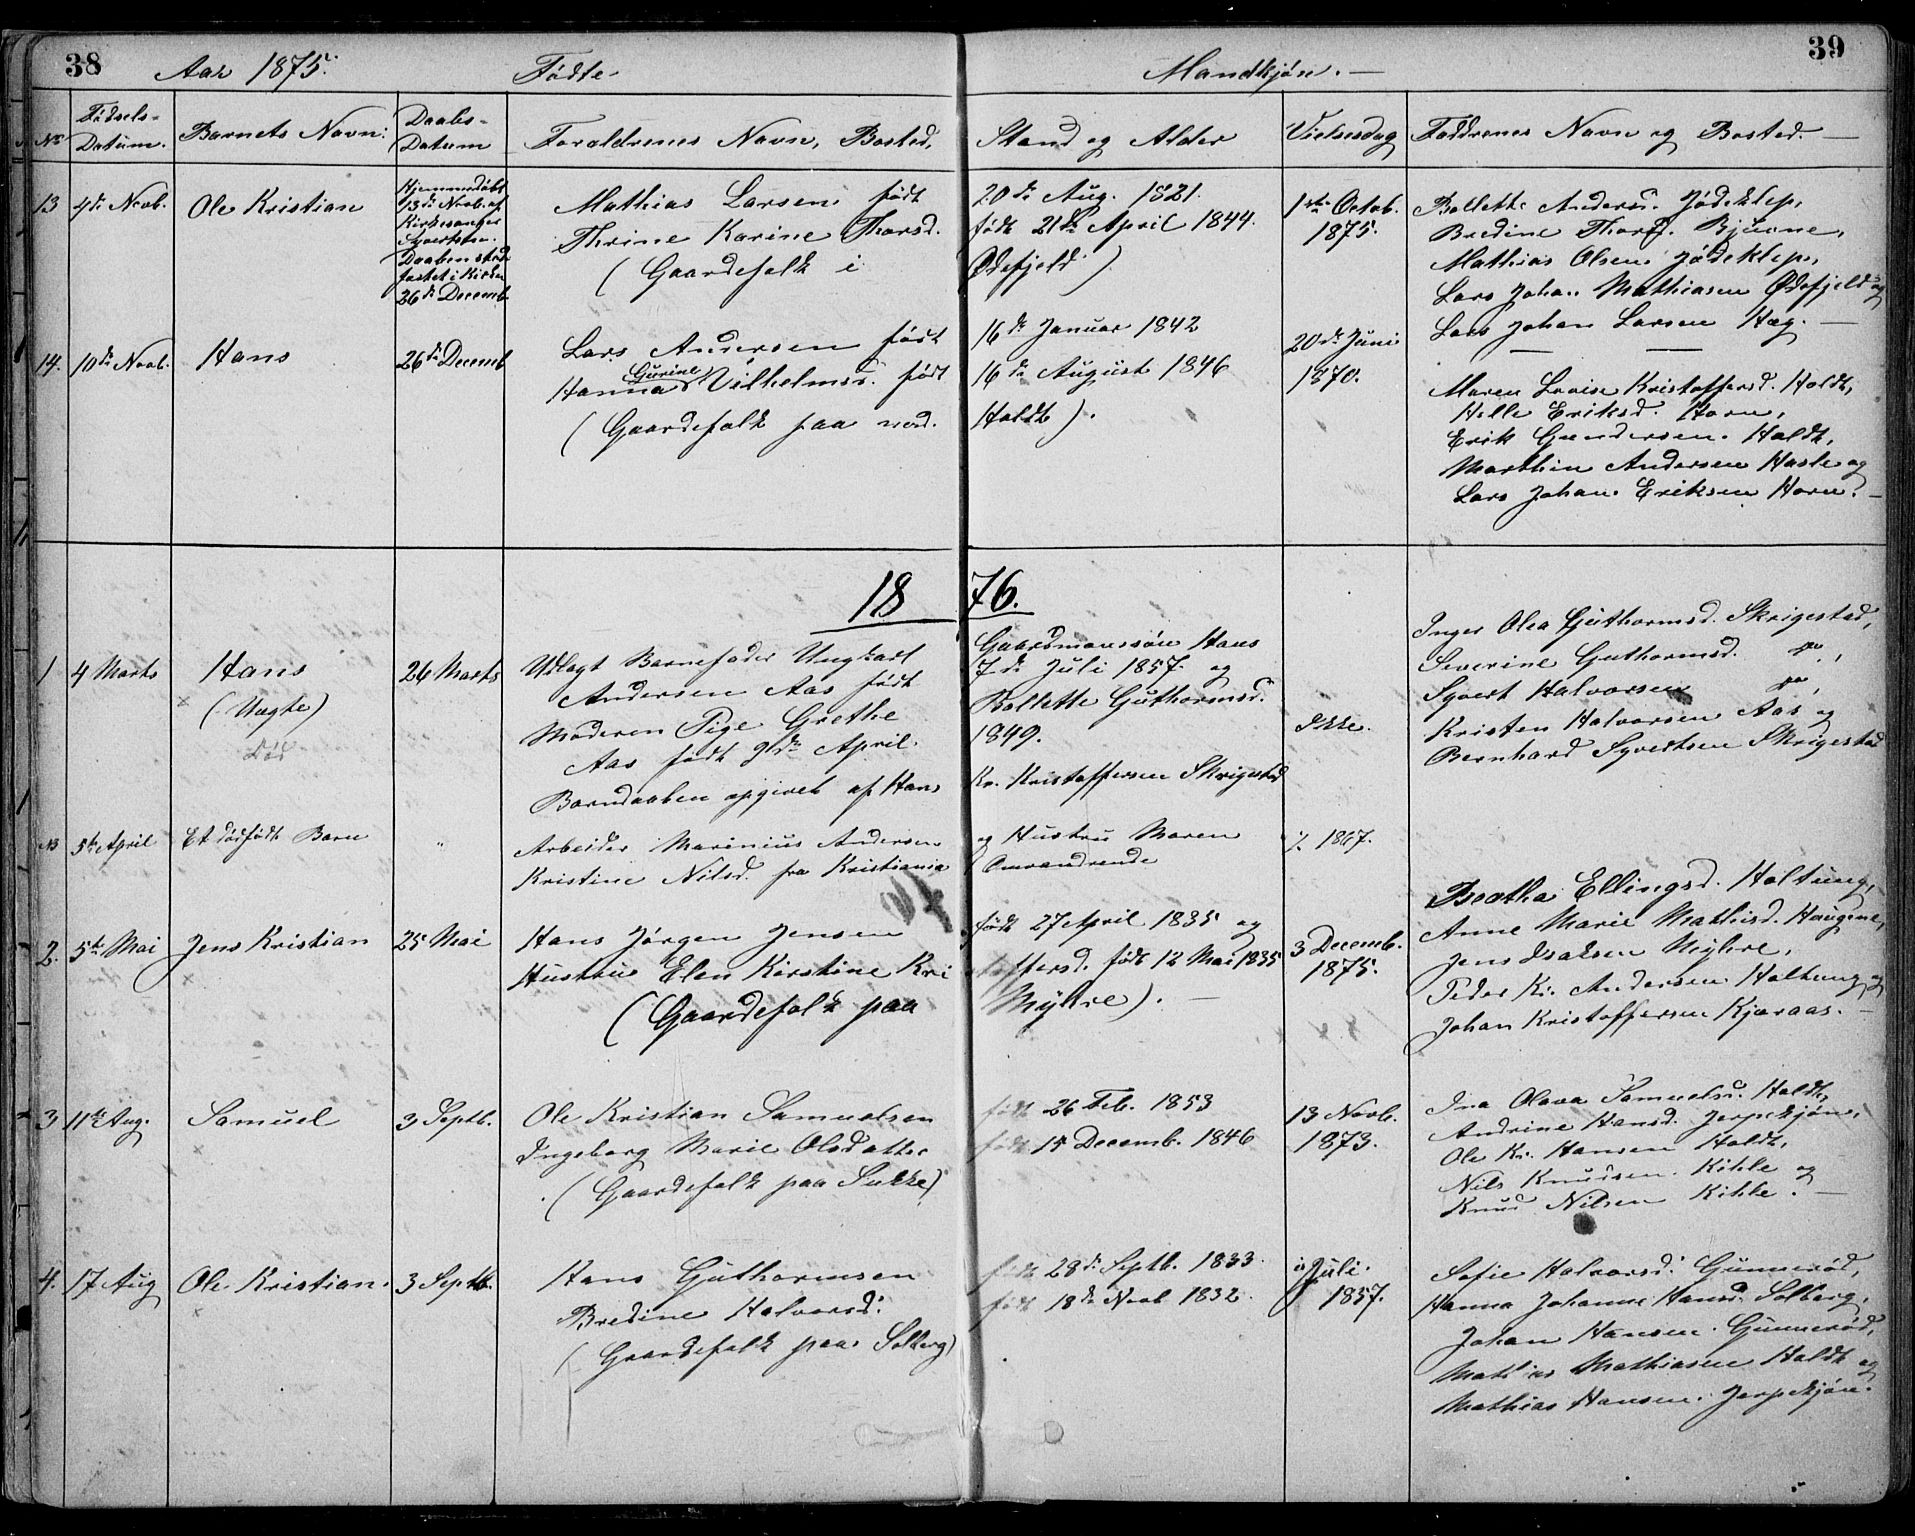 38 Aar 1875. Fødte Mandkjøn. — 39
No Fødsels-Datum. Barnets Navn: Daabs-Datum Foraldrenes Navn, Bosted, Stand og Alder Vielsesdag Faddrenes Navn og Bosted. —
13 4de Novb. Ole Kristian
Hjemmedøbt
13de Novb. af
Kirkesanger
Syvertsen.
Daaben stad
fæstet i Kirken
26de Decemb.
Mathias Larsen, født 20de Aug. 1821.
Thrine Karine Thorsd. født 21de April 1844.
(Gaardefolk i Ødefjeld).
1ste Octob.
1875.
Bollette Andersd. Jødeklep,
Bredine Thorsd. Bjerone,
Mathias Olsen, Jødeklep,
Lars Johan Mathiasen Ødefjeld og
Lars Johan Larsen Hæg. —
14. 10de Novb. Hans 26de Decemb
Lars Andersen født 16de Januar 1842
Gurine
Hanna Vilhelmsd. født 16de August 1846
(Gaardefolk paa nord. Holdt).
20de Juni
1870.
Maren Lovise Kristoffersd. Holdt,
Helle Eriksd. Horn,
Erik Gundersen. Holdt,
Marthin Andersen Hasle og
Lars Johan Eriksen Horn. —
1876.
1 4 Marts Hans
(Uægte)
Død
26 Marts
Udlagt Barnefader Ungkarl Gaardmanssøn Hans
Andersen Aas født 7de Juli 1857. og
Moderen Pige Grethe Bollette Guthormsd.
Aas født 9de April. 1849.
Barndaaben opgivet af Hans Kr. Kristoffersen Skrigestad
Ikke.
Inger Olea Guthormsd. Skrigestad,
Severine Guthormsd. do,
Syvert Halvorsen do,
Kristen Halvorsen Aas og
Bernhard Syvertsen Skrigestad
NB 5te April Et dødfødt Barn "
Arbeider Marinius Andersen og Hustru Maren
Kristine Nilsd. fra Kristiania Omvandrende
1867.
2. 5te Mai Jens Kristian 25 Mai
Hans Jørgen Jensen født 27 April 1835 og
Hustru Elen Kirstine Kristoffersd. født 12 Mai 1835
(Gaardefolk paa Myhre). —
3 Decemb.
1875.
Beatha Ellingsd. Holtung,
Anne Marie Mathisd. Haugene,
Jens Isaksen Myhre,
Peder Kr. Andersen Holtung og
Johan Kristoffersen Kjæraas. —
3 11te Aug. Samuel 3 Septb.
Ole Kristian Samuelsen født 26 Feb. 1853
Ingeborg Marie Olsdatter født 14 Decemb. 1846
(Gaardefolk paa Sukke)
13 Novb.
1873.
Ina Olava Samuelsd. Holdt,
Andrine Hansd. Jerpekjøn,
Ole Kr. Hansen Holdt,
Nils Knudsen. Kihle og
Knud Nilsen Kihle. —
4. 17 Aug Ole Kristian. 3 Septb.
Hans Guthormsen født 28de Septb. 1833.
Bredine Halvorsd. født 18de Novb 1832.
(Gaardefolk paa Solberg)
i Juli.
1857.
Sofie Halvorsd. Gunnerød,
Hanna Johanne Hansd. Solberg,
Johan Hansen. Gunnerød,
Mathias Mathiasen Holdt og
Mathias Hansen. Jerpekjøn.